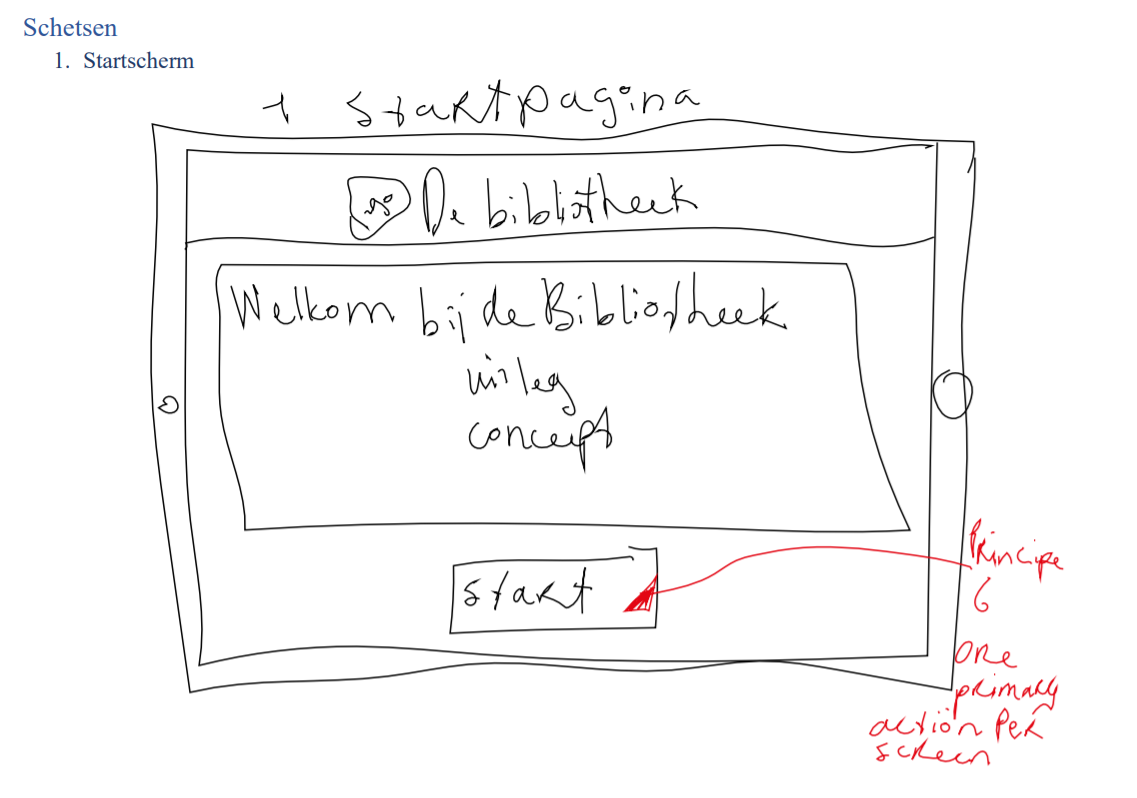 Schetsen
1. Startscherm
1 startpagina
De bibliotheek
Welkom bij de Bibliotheek
uitleg
concept
start
Principe
6
one
primary
action per
screen